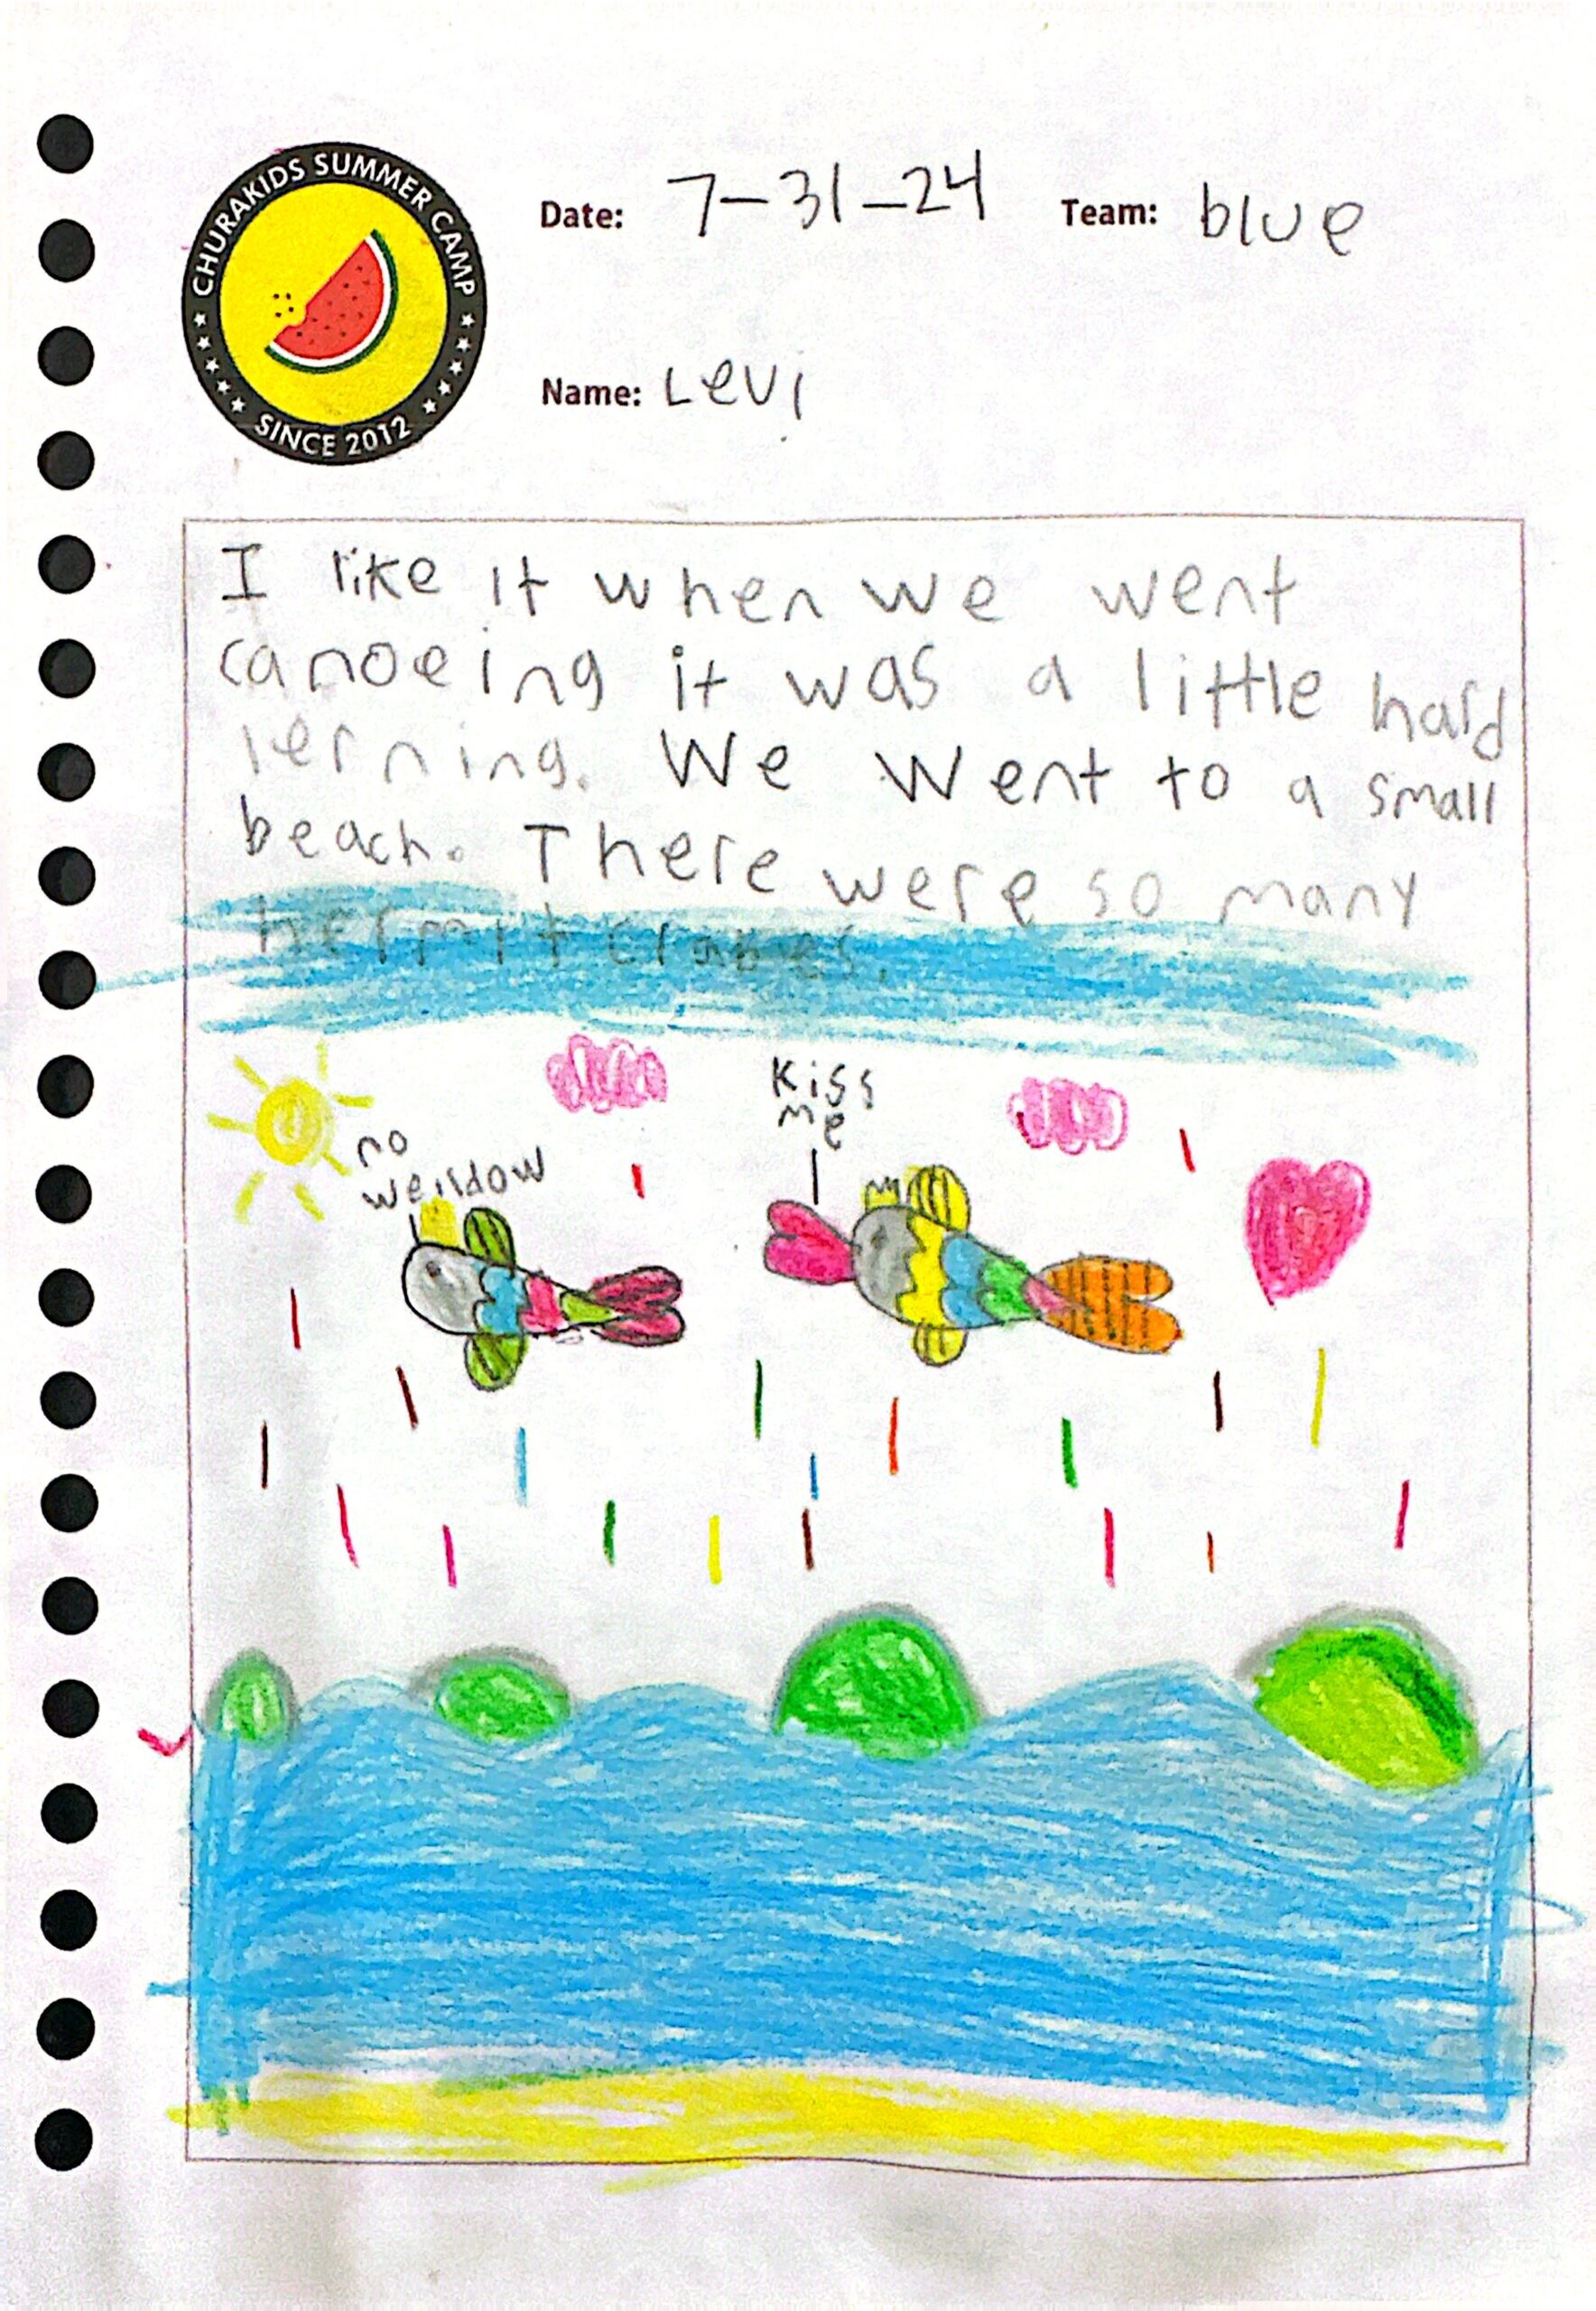 CHURAKIDS SUMMER CAMP
SINCE 2012
Date: 7-31-24 Team: blue
Name: Levi
I like it when we went
canoeing it was a little hard
lerning. We went to a small
beach. There were so many
hermit crabes.
Kiss
me
no